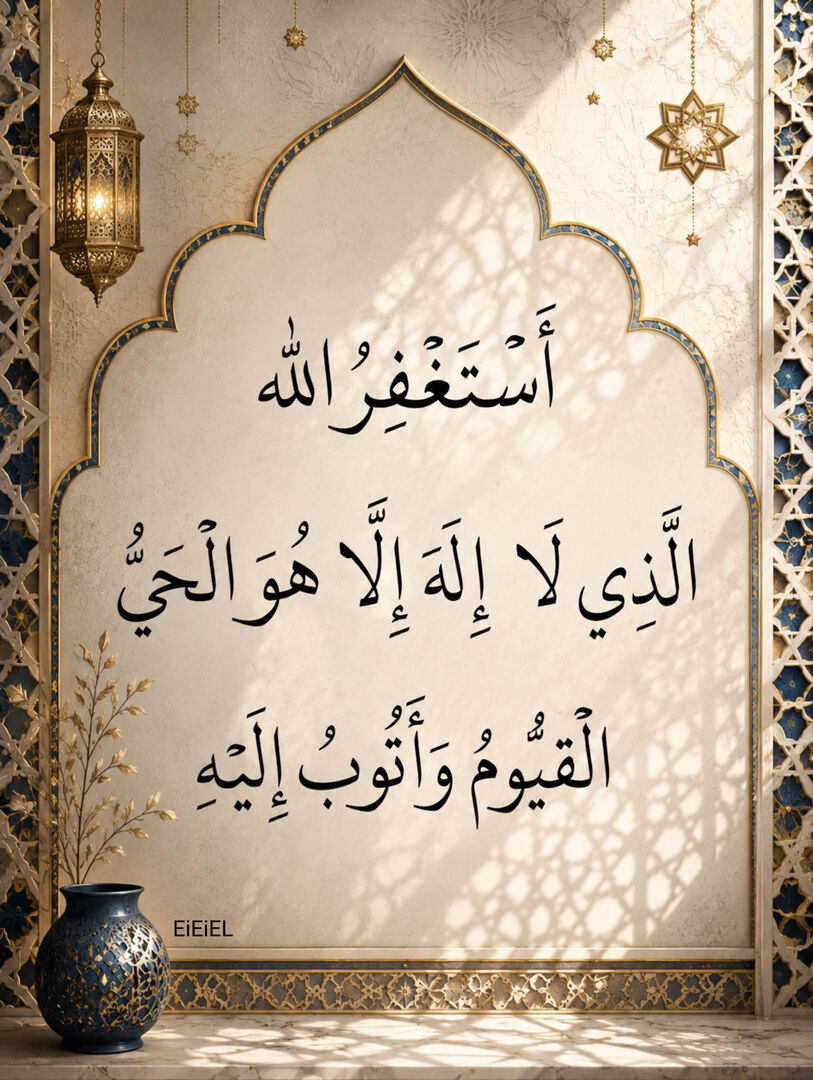 أَسْتَغْفِرُ الله
الَّذِي لَا إِلَهَ إِلَّا هُوَ الْحَيُّ
الْقَيُّومُ وَأَتُوبُ إِلَيْهِ
EiEiEL